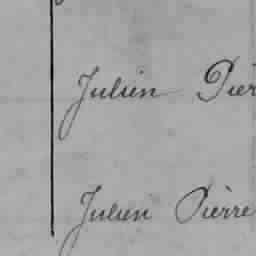 Julien Pier
Julien Pièrre